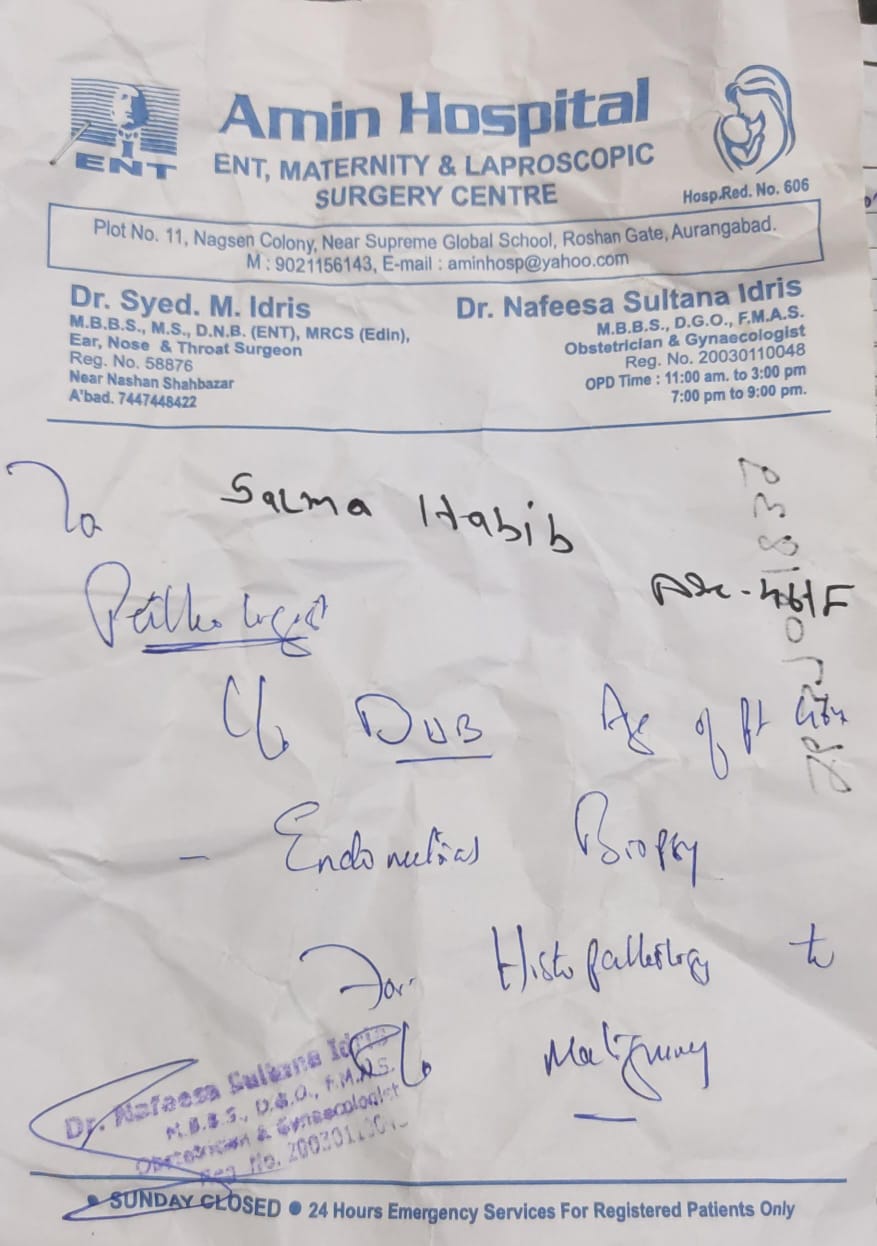 ENT
Amin Hospital
ENT, MATERNITY & LAPROSCOPIC
SURGERY CENTRE
Hosp.Red. No. 606
Plot No. 11, Nagsen Colony, Near Supreme Global School, Roshan Gate, Aurangabad.
M : 9021156143, E-mail : aminhosp@yahoo.com
Dr. Syed. M. Idris
M.B.B.S., M.S., D.N.B. (ENT), MRCS (Edin),
Ear, Nose & Throat Surgeon
Reg. No. 58876
Near Nashan Shahbazar
A'bad. 7447448422
Dr. Nafeesa Sultana Idris
M.B.B.S., D.G.O., F.M.A.S.
Obstetrician & Gynaecologist
Reg. No. 20030110048
OPD Time : 11:00 am. to 3:00 pm
7:00 pm to 9:00 pm.
To Salma Habib
Pathologist
C/o DUB Age of Pt
- Endometrial Biopsy
For Histopathology to
R/o Malignancy
Dr. Nafeesa Sultana Idris
M.B.B.S., D.G.O., F.M.A.S.
Obstetrician & Gynaecologist
Reg. No.
• SUNDAY CLOSED • 24 Hours Emergency Services For Registered Patients Only